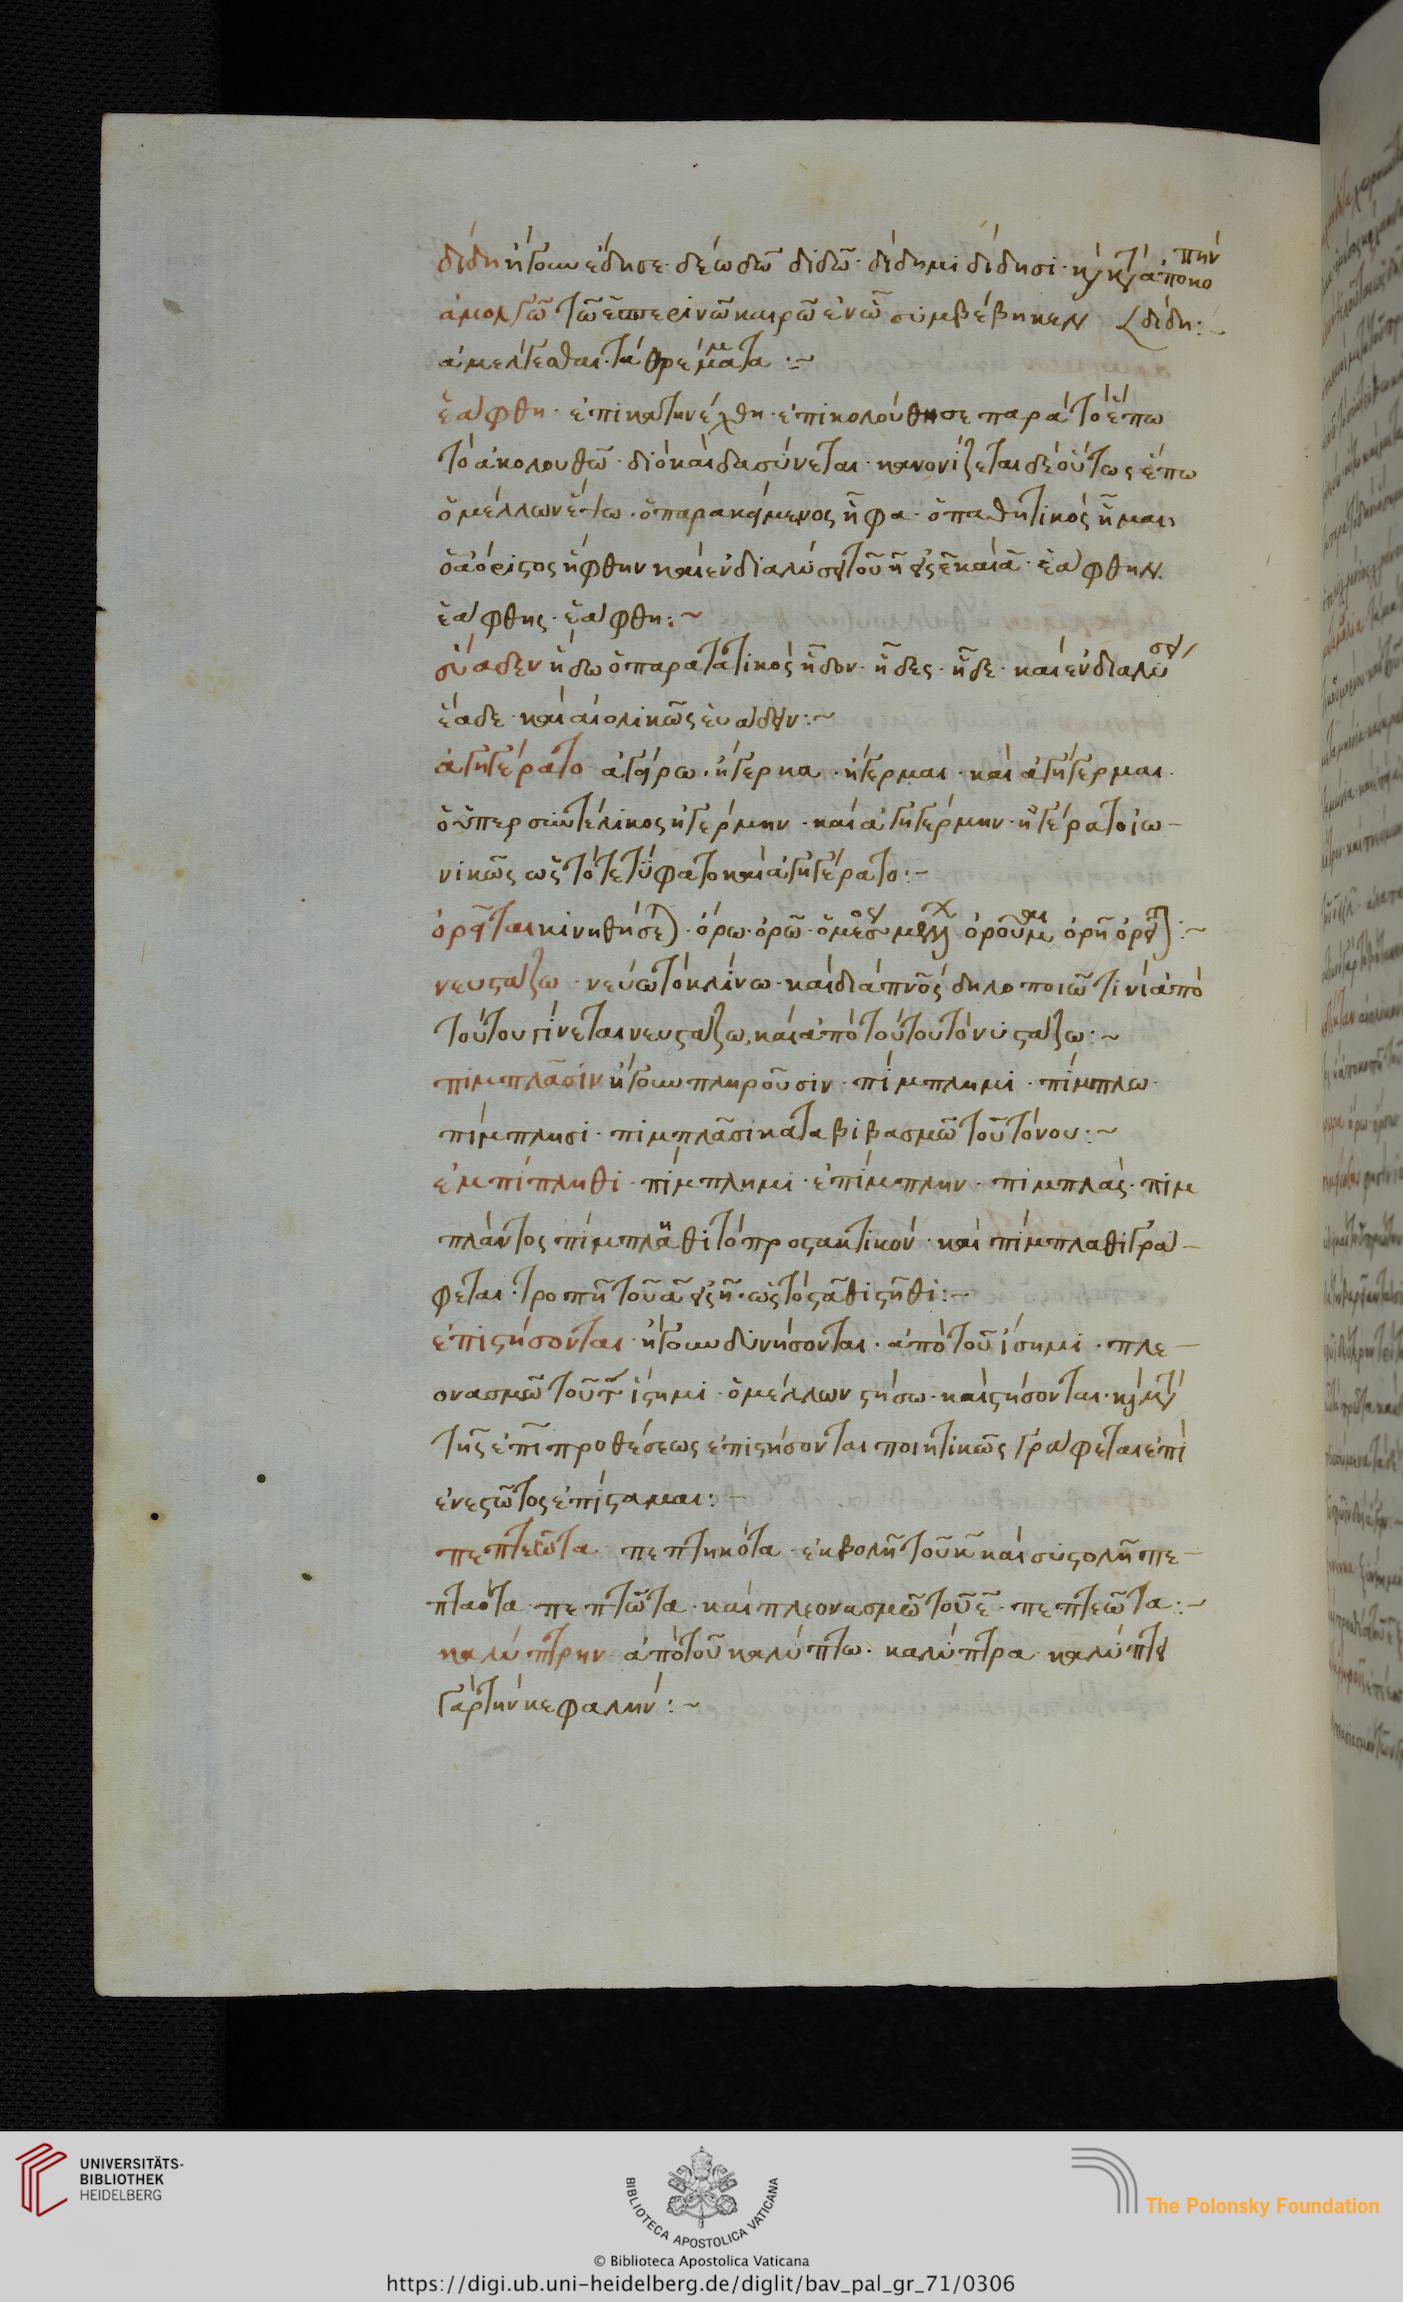 δίδη ἤγουν ἔδησε· δέω δῶ διδῶ· δίδημι δίδησι· καὶ κατὰ ἀποκοπὴν
ἀμολγῷ τῷ ἑσπερινῷ καιρῷ ἐν ᾧ συμβέβηκεν δίδη:~
ἀμέλγεσθαι τὰ θρέμματα:~
ἐάφθη· ἐπικατηνέχθη· ἐπικολούθησε παρὰ τὸ ἕπω
τὸ ἀκολουθῶ· διὸ καὶ δασύνεται· κανονίζεται δὲ οὕτως ἕπω
ὁ μέλλων ἕψω· ὁ παρακείμενος ἧφα· ὁ παθητικὸς ἧμμαι
ὁ ἀόριστος ἥφθην καὶ ἐν διαλύσει τοῦ η εἰς ε καὶ α· ἐάφθην
ἐάφθης· ἐάφθη:~
εὔαδεν ἥδω ὁ παρατατικὸς ἧδον· ἧδες· ἧδε· καὶ ἐν διαλύσει
ἕαδε· καὶ αἰολικῶς εὔαδεν:~
ἀγηγέρατο ἀγείρω· ἤγερκα· ἤγερμαι· καὶ ἀγήγερμαι
ὁ ὑπερσυντέλικος ἠγέρμην· καὶ ἀγηγέρμην· ἠγέρατο ἰω-
νικῶς ὡς τὸ τετύφατο καὶ ἀγηγέρατο:~
ὀρεῖται κινηθήσεται· ὄρω· ὀρῶ· ὁ μέσος μέλλων ὀροῦμαι ὀρῇ ὀρεῖται:~
νευστάζω· νεύω τὸ κλίνω· καὶ διὰ πν̅ς δηλοποιῶ τινί ἀπὸ
τούτου γίνεται νευστάζω, καὶ ἀπὸ τούτου τὸ νυστάζω:~
πιμπλᾶσιν ἤγουν πληροῦσιν· πίμπλημι· πίμπλω·
πίμπλησι· πιμπλᾶσι καταβιβασμῷ τοῦ τόνου:~
ἐμπίπληθι· πίμπλημι· ἐπίμπλην· πιμπλὰς· πιμ
πλάντος πίμπλαθι τὸ προστακτικόν· καὶ πίμπλαθι γρά-
φεται· τροπῇ τοῦ α εἰς η· ὡς τὸ στᾶθι στῆθι:~
ἐπιστήσονται· ἤγουν δυνήσονται· ἀπὸ τοῦ ἴσημι· πλε-
ονασμῷ τοῦ τ ἵστημι· ὁ μέλλων στήσω· καὶ στήσονται· καὶ μετὰ
τῆς ἐπὶ προθέσεως ἐπιστήσονται ποιητικῶς γράφεται ἐπὶ
ἐνεστῶτος ἐπίσταμαι:~
πεπτεῶτα πεπτηκότα· ἐκβολῇ τοῦ κ καὶ συστολῇ πε-
πταότα· πεπτῶτα· καὶ πλεονασμῷ τοῦ ε· πεπτεῶτα:~
καλύπτρην· ἀπὸ τοῦ καλύπτω· καλύπτρα· καλύπτει
γὰρ τὴν κεφαλήν:~
UNIVERSITÄTS-
BIBLIOTHEK
HEIDELBERG
BIBLIOTECA APOSTOLICA VATICANA
© Biblioteca Apostolica Vaticana
The Polonsky Foundation
https://digi.ub.uni-heidelberg.de/diglit/bav_pal_gr_71/0306